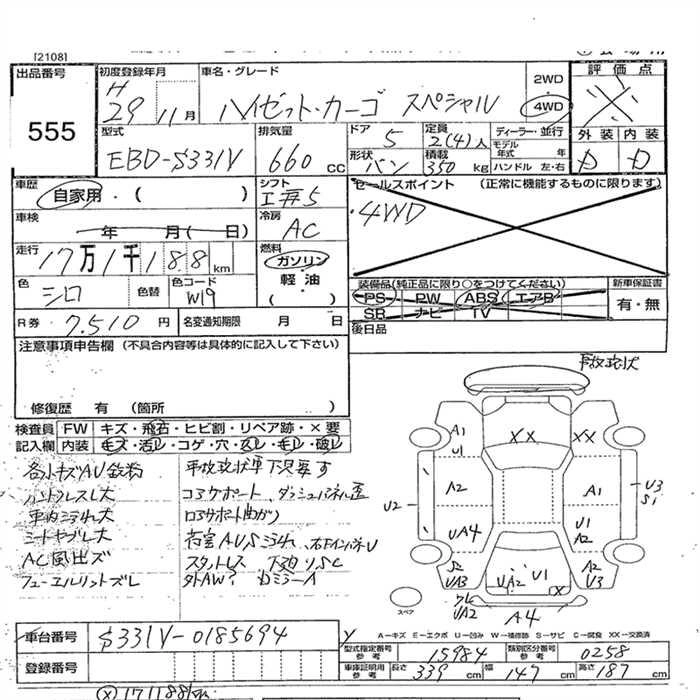 [2108]
出品番号 初度登録年月 車名・グレード 2WD 評価点
555 H 29 11月 ハイゼット・カーゴ スペシャル 4WD
型式 排気量 ドア 定員 ディーラー・並行 外装 内装
EBD-S331V 660cc 5 2(4)人 モデル年式 年 D D
形状 積載 ハンドル 左・右
バン 350kg
車歴 シフト セールスポイント (正常に機能するものに限ります)
自家用・( ) 5 4WD
車検 冷房
年 月(日) AC
走行 燃料
17万1千188km ガソリン
色 色替 色コード 軽油
シロ W19 ( )
装備品(純正品に限り○をつけてください) 新車保証書
PS PW ABS エアB 有・無
SR ナビ TV
R券 7,510円 名変通知期限 月 日
後日品
注意事項申告欄 (不具合内容等は具体的に記入して下さい)
事故現状
修復歴 有 (箇所 )
検査員 FW キズ・飛石・ヒビ割・リペア跡・×要
記入欄 内装 キズ・汚レ・コゲ・穴・スレ・モレ・破レ
各小キズAU
ハンドルスレ大
車内ヨゴレ大
シートヤブレ大
AC風出ズ
フューエルリットズレ
事故現状車下見要す
コアサポート、ダッシュパネル歪
ロアサポート曲がり
荷室AUSヨゴレ、右FインパネU
スタットレス 下廻りSC
外AW? Dミラー A
A1
U1
XX
XX
A2
A1
U2
U3
S1
UA4
U1
A2
S2
UA3
UA2
U1
X
A2
U3
UA2
A4
スペア
A-キズ E-エクボ U-凹み W-補修跡 S-サビ C-腐食 XX-交換済
車台番号 S331V-0185694
型式指定番号 参考 15984 類別区分番号 参考 0258
登録番号
車庫証明用 参考 長さ 339cm 幅 147cm 高さ 187cm